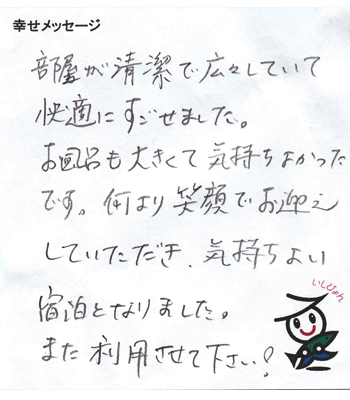 幸せメッセージ
部屋が清潔で広々していて
快適にすごせました。
お風呂も大きくて気持ちよかった
です。何より笑顔でお迎え
していただき、気持ちよい
宿泊となりました。
また利用させて下さい!
いしぴょん